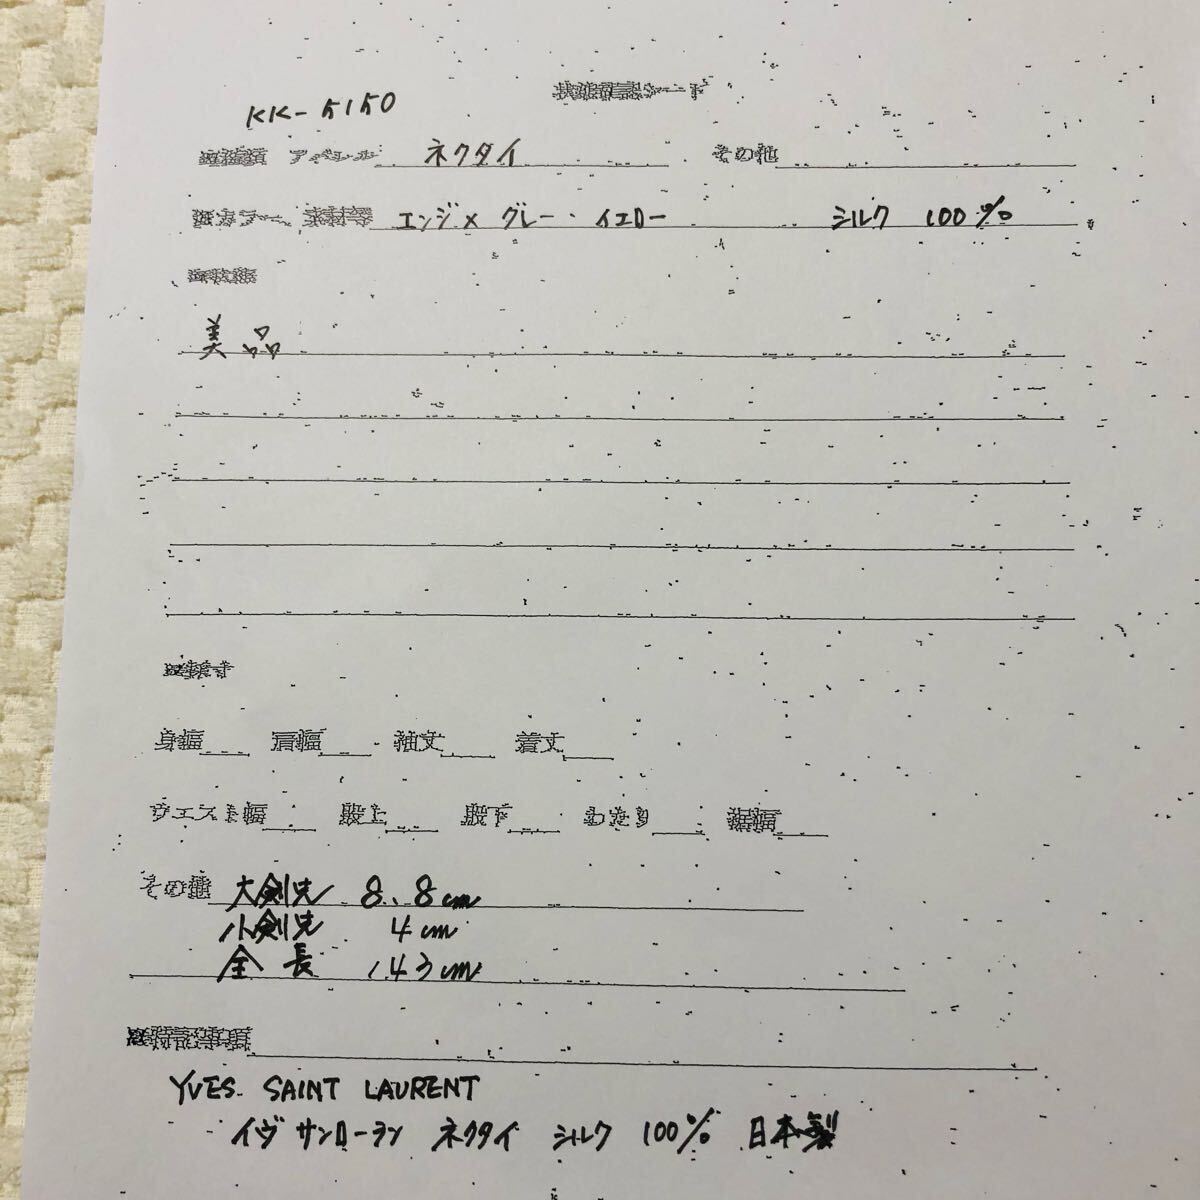 状態確認シート
KK-5150
アパレル ネクタイ その他
カラー 素材等 エンジ×グレー・イエロー シルク 100%
状態
美品
身幅 肩幅 袖丈 着丈
ウエスト幅 股上 股下 わたり 裾幅
その他 大剣先 8.8cm
小剣先 4cm
全長 143cm
特記事項
YVES SAINT LAURENT
イヴサンローラン ネクタイ シルク 100% 日本製